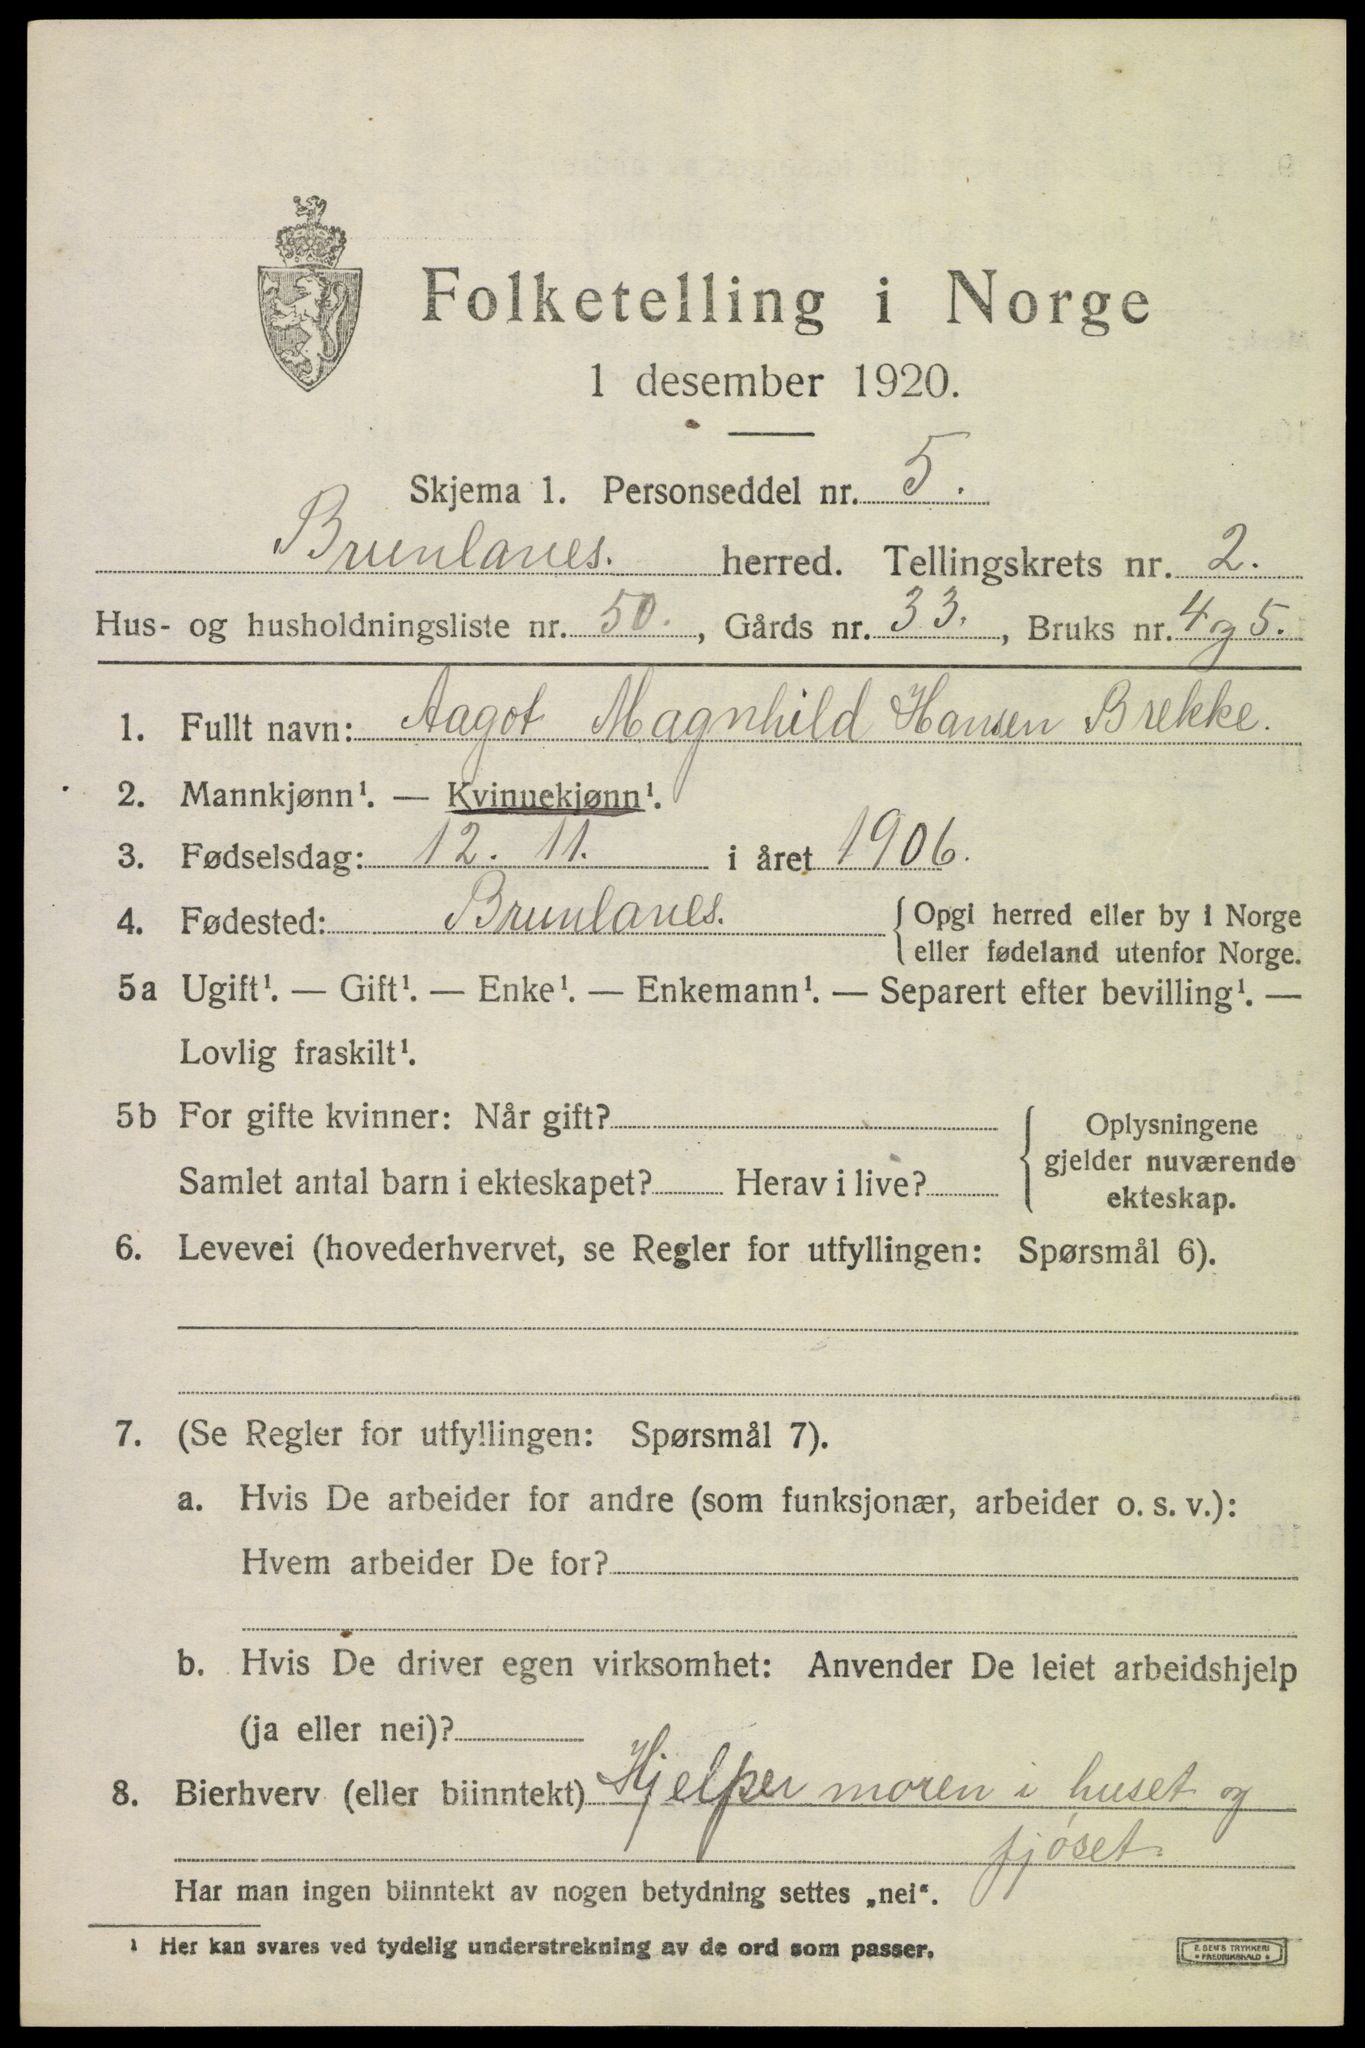 Folketelling i Norge
1 desember 1920.
Skjema 1. Personseddel nr. 5.
Brunlanes. herred. Tellingskrets nr. 2.
Hus- og husholdningsliste nr. 50., Gårds nr. 33., Bruks nr. 4 og 5.
1. Fullt navn: Aagot Magnhild Hansen Brekke.
2. Mannkjønn¹. — Kvinnekjønn¹.
3. Fødselsdag: 12. 11. i året 1906.
4. Fødested: Brunlanes. { Opgi herred eller by i Norge
eller fødeland utenfor Norge.
5a Ugift¹. — Gift¹. — Enke¹. — Enkemann¹. — Separert efter bevilling¹. —
Lovlig fraskilt¹.
5b For gifte kvinner: Når gift?
Samlet antal barn i ekteskapet? Herav i live?
Oplysningene
gjelder nuværende
ekteskap.
6. Levevei (hovederhvervet, se Regler for utfyllingen: Spørsmål 6).
7. (Se Regler for utfyllingen: Spørsmål 7).
a. Hvis De arbeider for andre (som funksjonær, arbeider o. s. v.):
Hvem arbeider De for?
b. Hvis De driver egen virksomhet: Anvender De leiet arbeidshjelp
(ja eller nei)?
8. Bierhverv (eller biinntekt) Hjelper moren i huset og
fjøset.
Har man ingen biinntekt av nogen betydning settes „nei“.
¹ Her kan svares ved tydelig understrekning av de ord som passer.
E. SEM'S TRYKKERI
* FREDRIKSHALD *